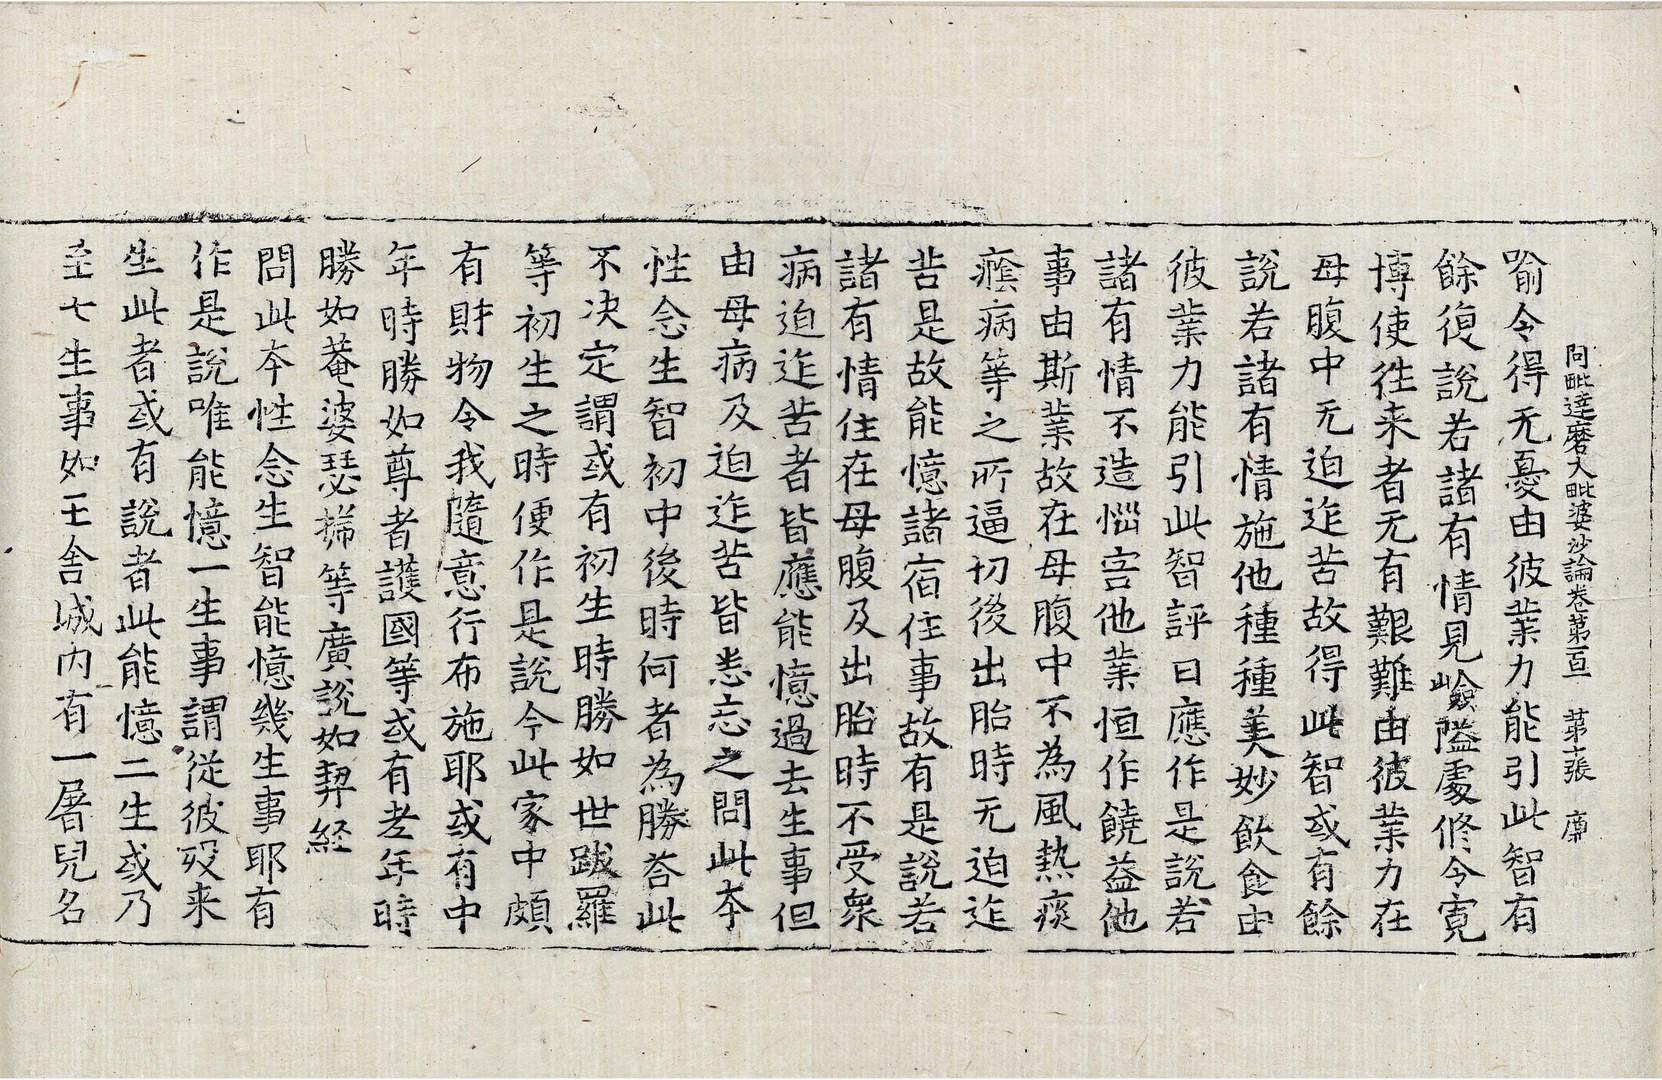 阿毗達磨大毗婆沙論卷第一百一 第十張 席
喻令得无憂由彼業力能引此智有
餘復說若諸有情見嶮隘處修令寬
博使往来者无有艱難由彼業力在
母腹中无迫迮苦故得此智或有餘
說若諸有情施他種種美妙飲食由
彼業力能引此智評曰應作是說若
諸有情不造惱害他業恒作饒益他
事由斯業故在母腹中不為風熱痰
癊病等之所逼切後出胎時无迫迮
苦是故能憶諸宿住事故有是說若
諸有情住在母腹及出胎時不受衆
病迫迮苦者皆應能憶過去生事但
由母病及迫迮苦皆悉忘之問此本
性念生智初中後時何者為勝荅此
不决定謂或有初生時勝如世跋羅
等初生之時便作是說今此家中頗
有財物令我隨意行布施耶或有中
年時勝如尊者護國等或有老年時
勝如菴婆瑟搋等廣說如契経
問此本性念生智能憶幾生事耶有
作是說唯能憶一生事謂從彼歿来
生此者或有說者此能憶二生或乃
至七生事如王舍城内有一屠兒名